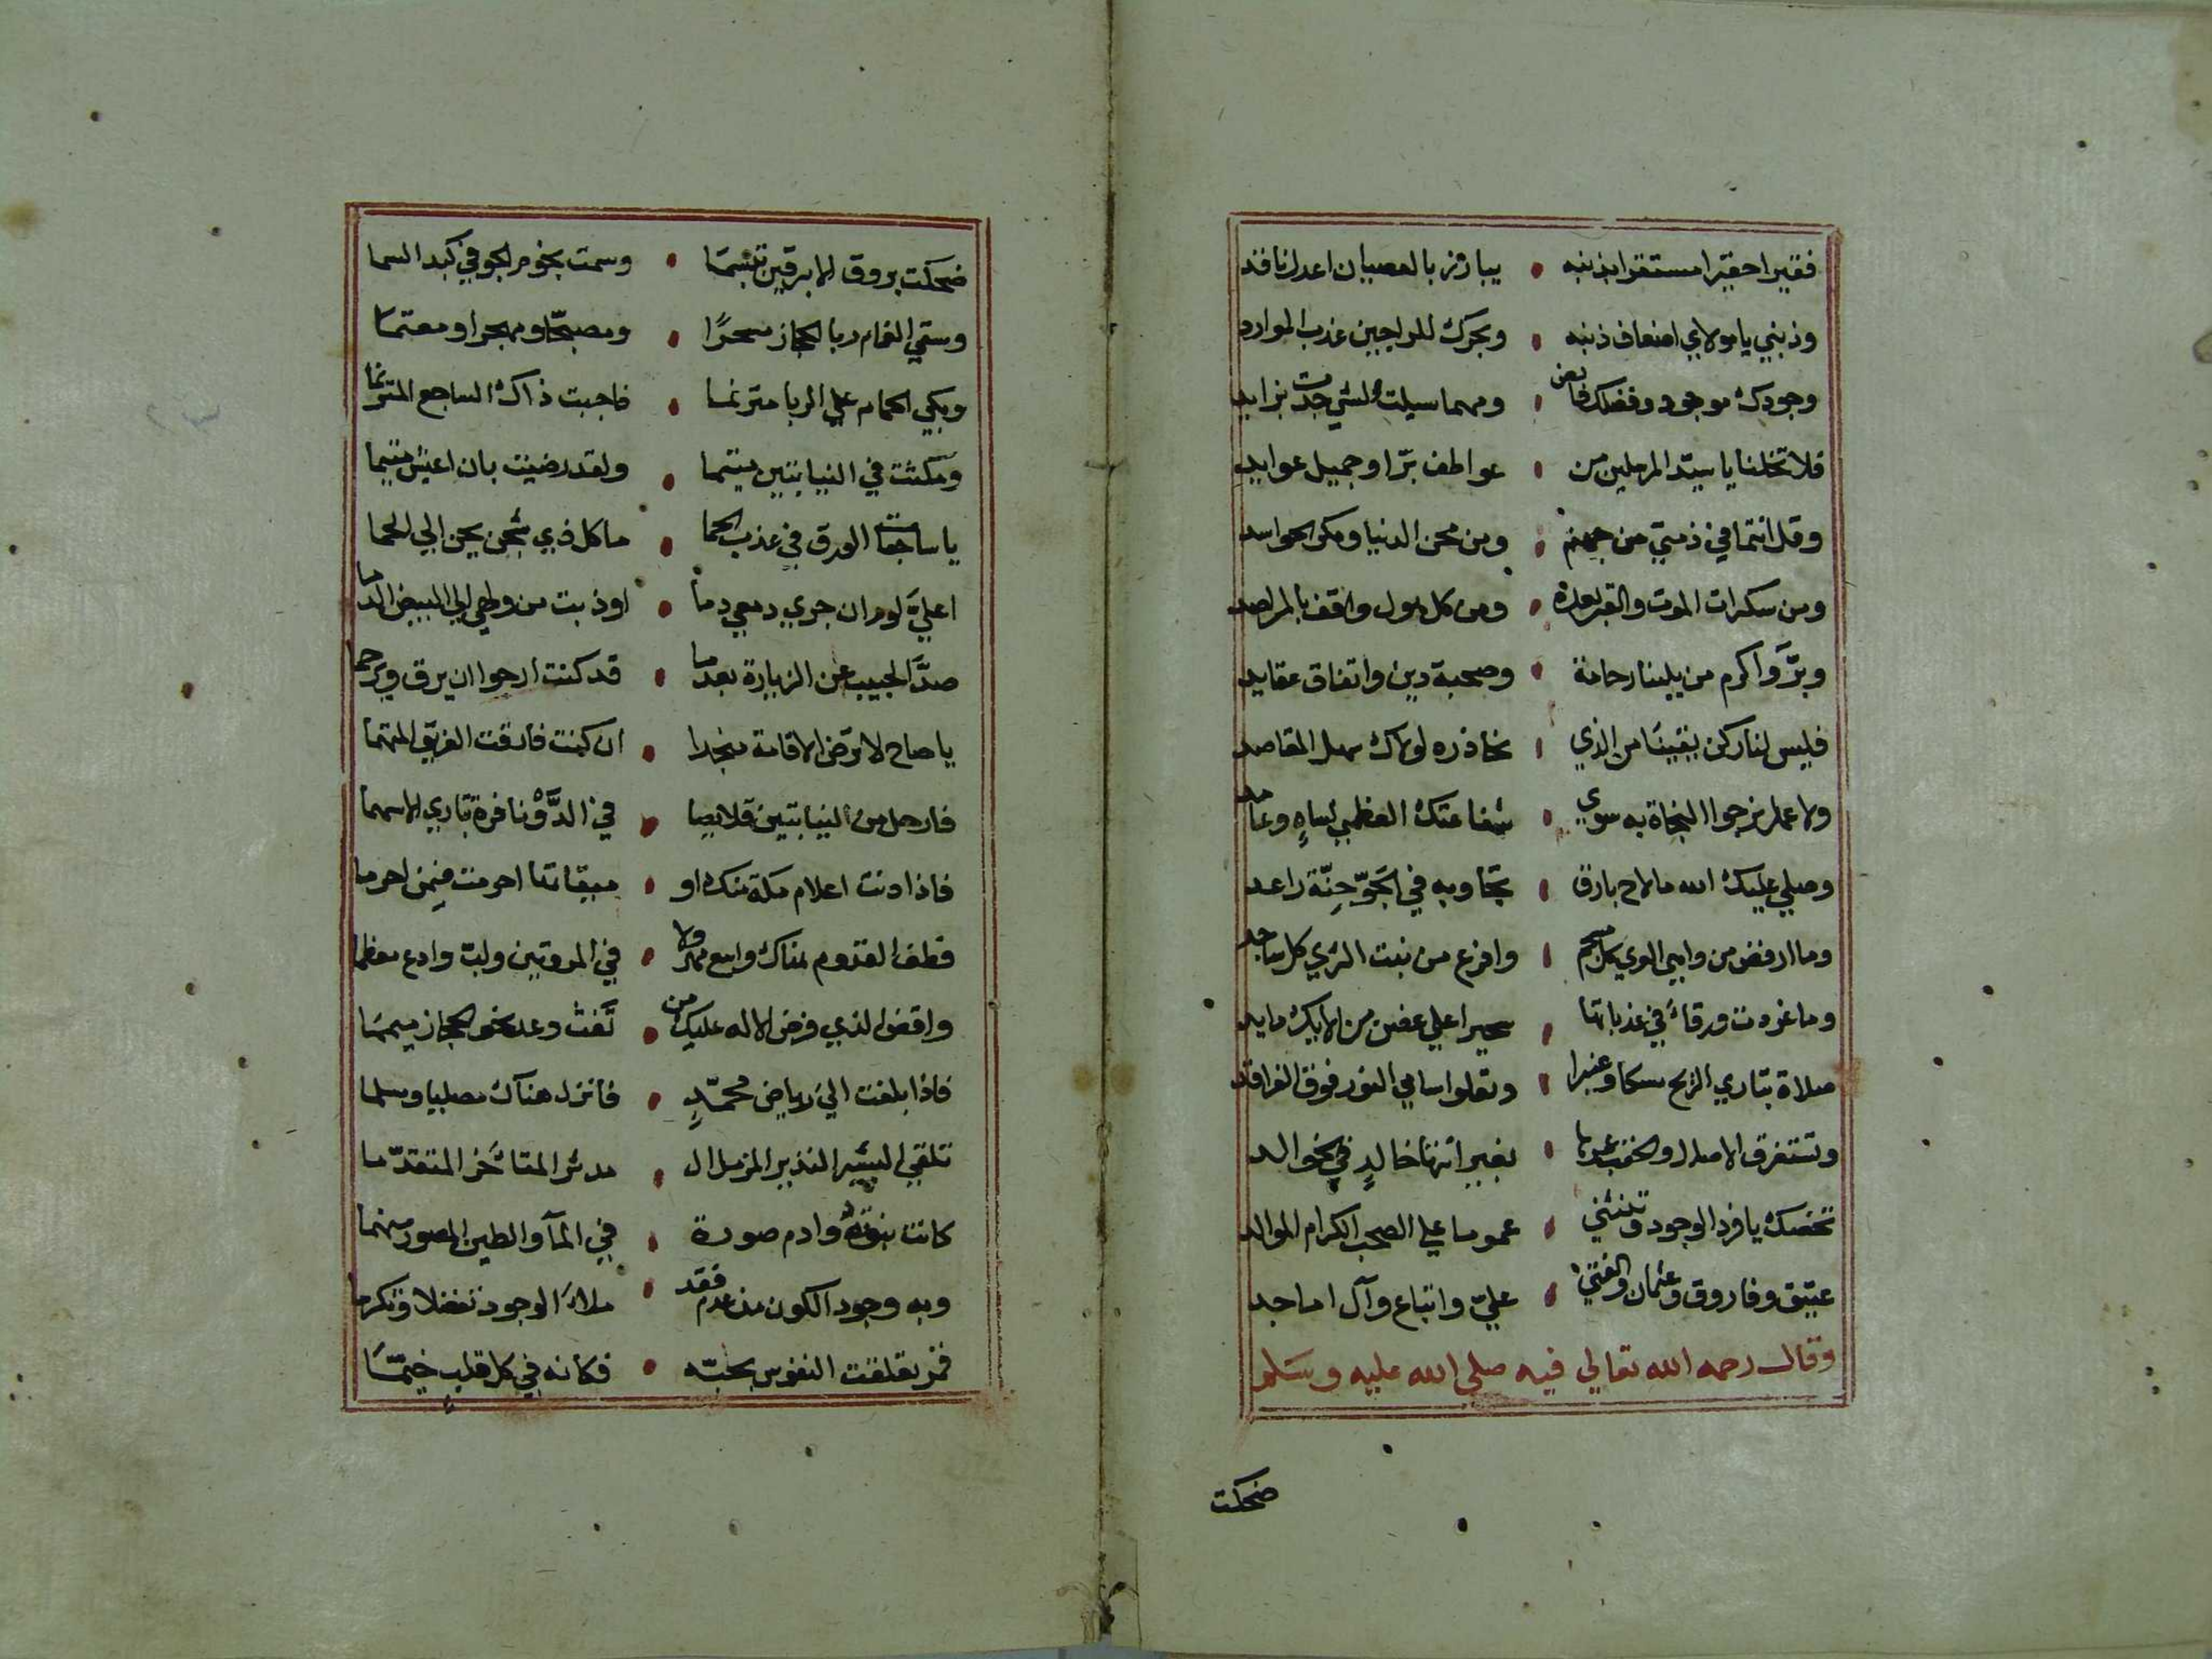 فقيرا حقيرا مستقرا بذنبه • يبارز بالعصيان اعدل ناقد
وذنبي يا مولاي اضعاف ذنبه • وبحرك للراجين عذب الموارد
وجودك موجود وفضلك فائض • ومهما سيلت الشي جدت بزايد
فلا تخلنا يا سيد المرسلين من • عواطف برا وجميل عوايد
وقل انتما في ذمتي من جهنم • ومن محن الدنيا ومكر الحواسد
ومن سكرات الموت والقبر بعده • ومن كل هول واقف بالمراصد
وبرَّ واكرم من يلينا رحامة • وصحبة دين واتفاق عقايد
فليس لنا ركن يقينا من الذي • نحاذره لولاك سهل المقاصد
ولا عمل نرجوا النجاة به سوي • شفاعتك العظمي لساهٍ وعامد
وصلي عليك الله ما لاح بارق • تجاوبه في الجَوّ حِنّة راعد
وما ارفض من وابل • وافرع من بنت الثري كل ساجد
وما غردت ورقاءُ في عذباتها • سحيرا علي غصن من الايك مايد
صلاة تباري الريح مسكا وعنبرا • وتعلوا سامي النور فوق الفراقد
وتستغرق • بغير انتها خالدٍ في خوالد
تخصك يا فرد الوجود وتنثني • عموما علي الصحب الكرام الموالد
عتيق وفاروق وعثمان والفتي • عليّ واتباع وآل اماجد
وقال رحمه الله تعالي فيه صلي الله عليه وسلم
ضحكت
ضحكت بروق الابرقين تبسّمًا • وسمت نجوم الجو في كبد السما
وسقي الغمام ربا الحجاز مسحرًا • ومصبحًا ومهجرا ومعتما
وبكي الحمام علي الربا مترنما • فاجبت ذاك الساجع المترنما
ومكثت في النيابتين متيما • ولقد رضيت بان اعيش متيما
يا ساجعات الورق في عذب الحما • ما كل ذي شجن يحن الي الحما
اعليَّ لوم ان جري دمعي دما • اوذبت من ولهي الي البيض الدما
صدَّ الحبيب عن الزيارة بعدما • قد كنت ارجوا ان يرق ويرحما
يا صاح لا ترض الاقامة منجدا • ان كنت فارقت الفريق المتهما
فارحل من النيابتين قلايصا • في الدَّوِّ نافرة تباري الاسهما
فاذا دنت اعلام مكة منك او • ميقاتها احرمت فيمن احرما
فطف القدوم هناك واسع مهرولا • في المروتين ولبّ وادع معظما
واقض الذي فرض الاله عليك من • تَفث وعد نحو الحجاز ميمما
فاذا بلغت الي رياض محمّدٍ • فانزل هناك مصليا ومسلما
تلقي البشير النذير المزمل ال • مدثر المتأخر المتقدّما
كانت نبوّته وادم صورة • في المآ والطين المصور منهما
وبه وجود الكون من عدم فقد • ملأ الوجود تفضلا وتكرما
قمر تعلقت النفوس بحبّه • فكانه في كل قلب خيّمًا